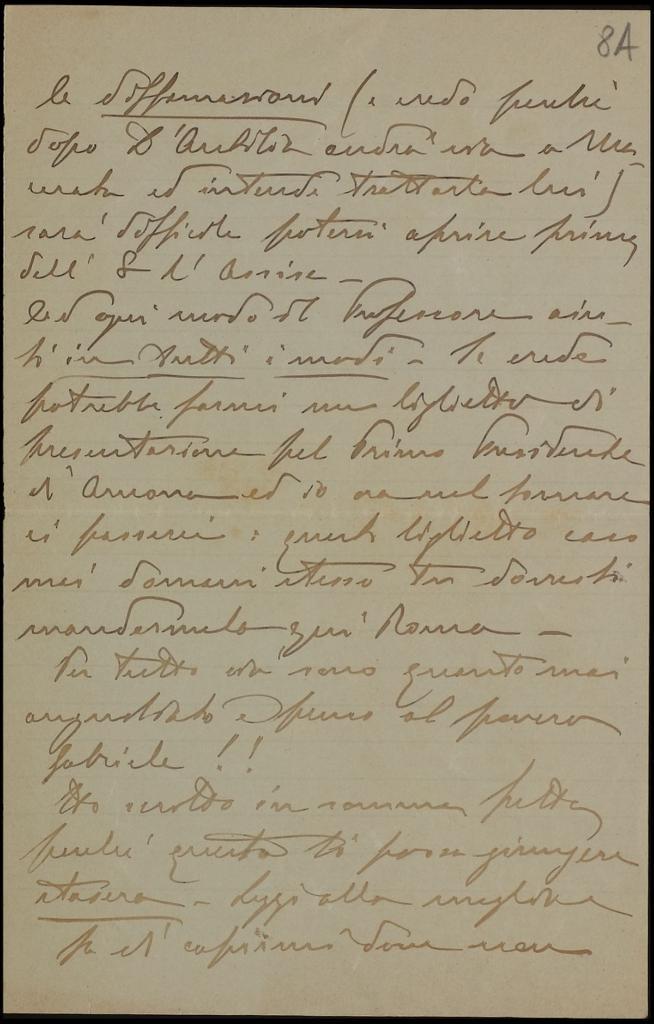 8A
le diffamazioni (e credo perché
dopo D'Antilia andrà via a Ma-
cerata ed intende trattarla lui)
sarà difficile potersi aprire prima
dell' 8 l' Assise —
Ed ogni modo il Professore aiu-
ti in tutti i modi — Se crede
potrebbe farmi un biglietto di
presentazione pel Primo Presidente
d'Ancona ed io ora nel tornare
ci passerei: questo biglietto caso
mai domani stesso tu dovresti
mandarmelo qui Roma —
Per tutto ciò sono quanto mai
angustiato e penso al povero
Gabriele!!
Ho scritto in somma fretta
perché questa ti possa giungere
stasera — Leggi alla meglio e
fa di capirmi dove non